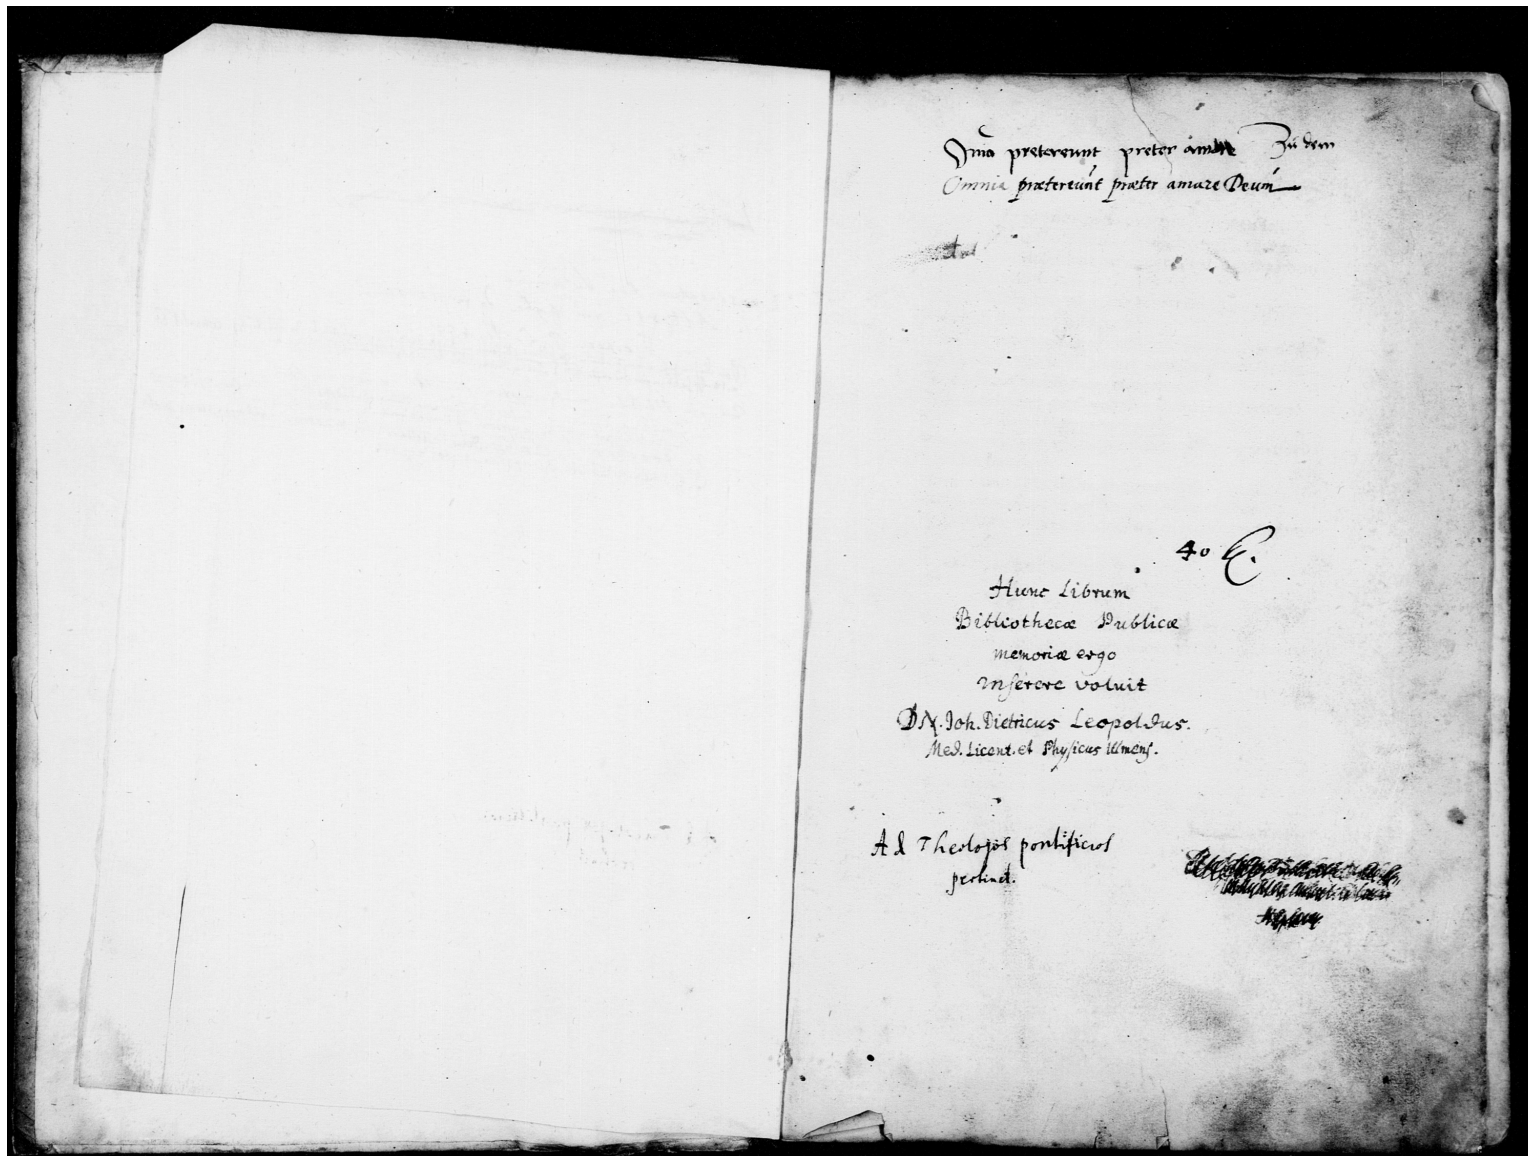 Omnia pretereunt preter amare Zu dem
Omnia prætereunt præter amare Deum
40
Hunc Librum
Bibliothecæ Publicæ
memoriæ ergo
inserere voluit
DN. Joh. Dietricus Leopoldus.
Med. Licent. et Physicus Ulmens.
Ad Theologos pontificios
pertinet.